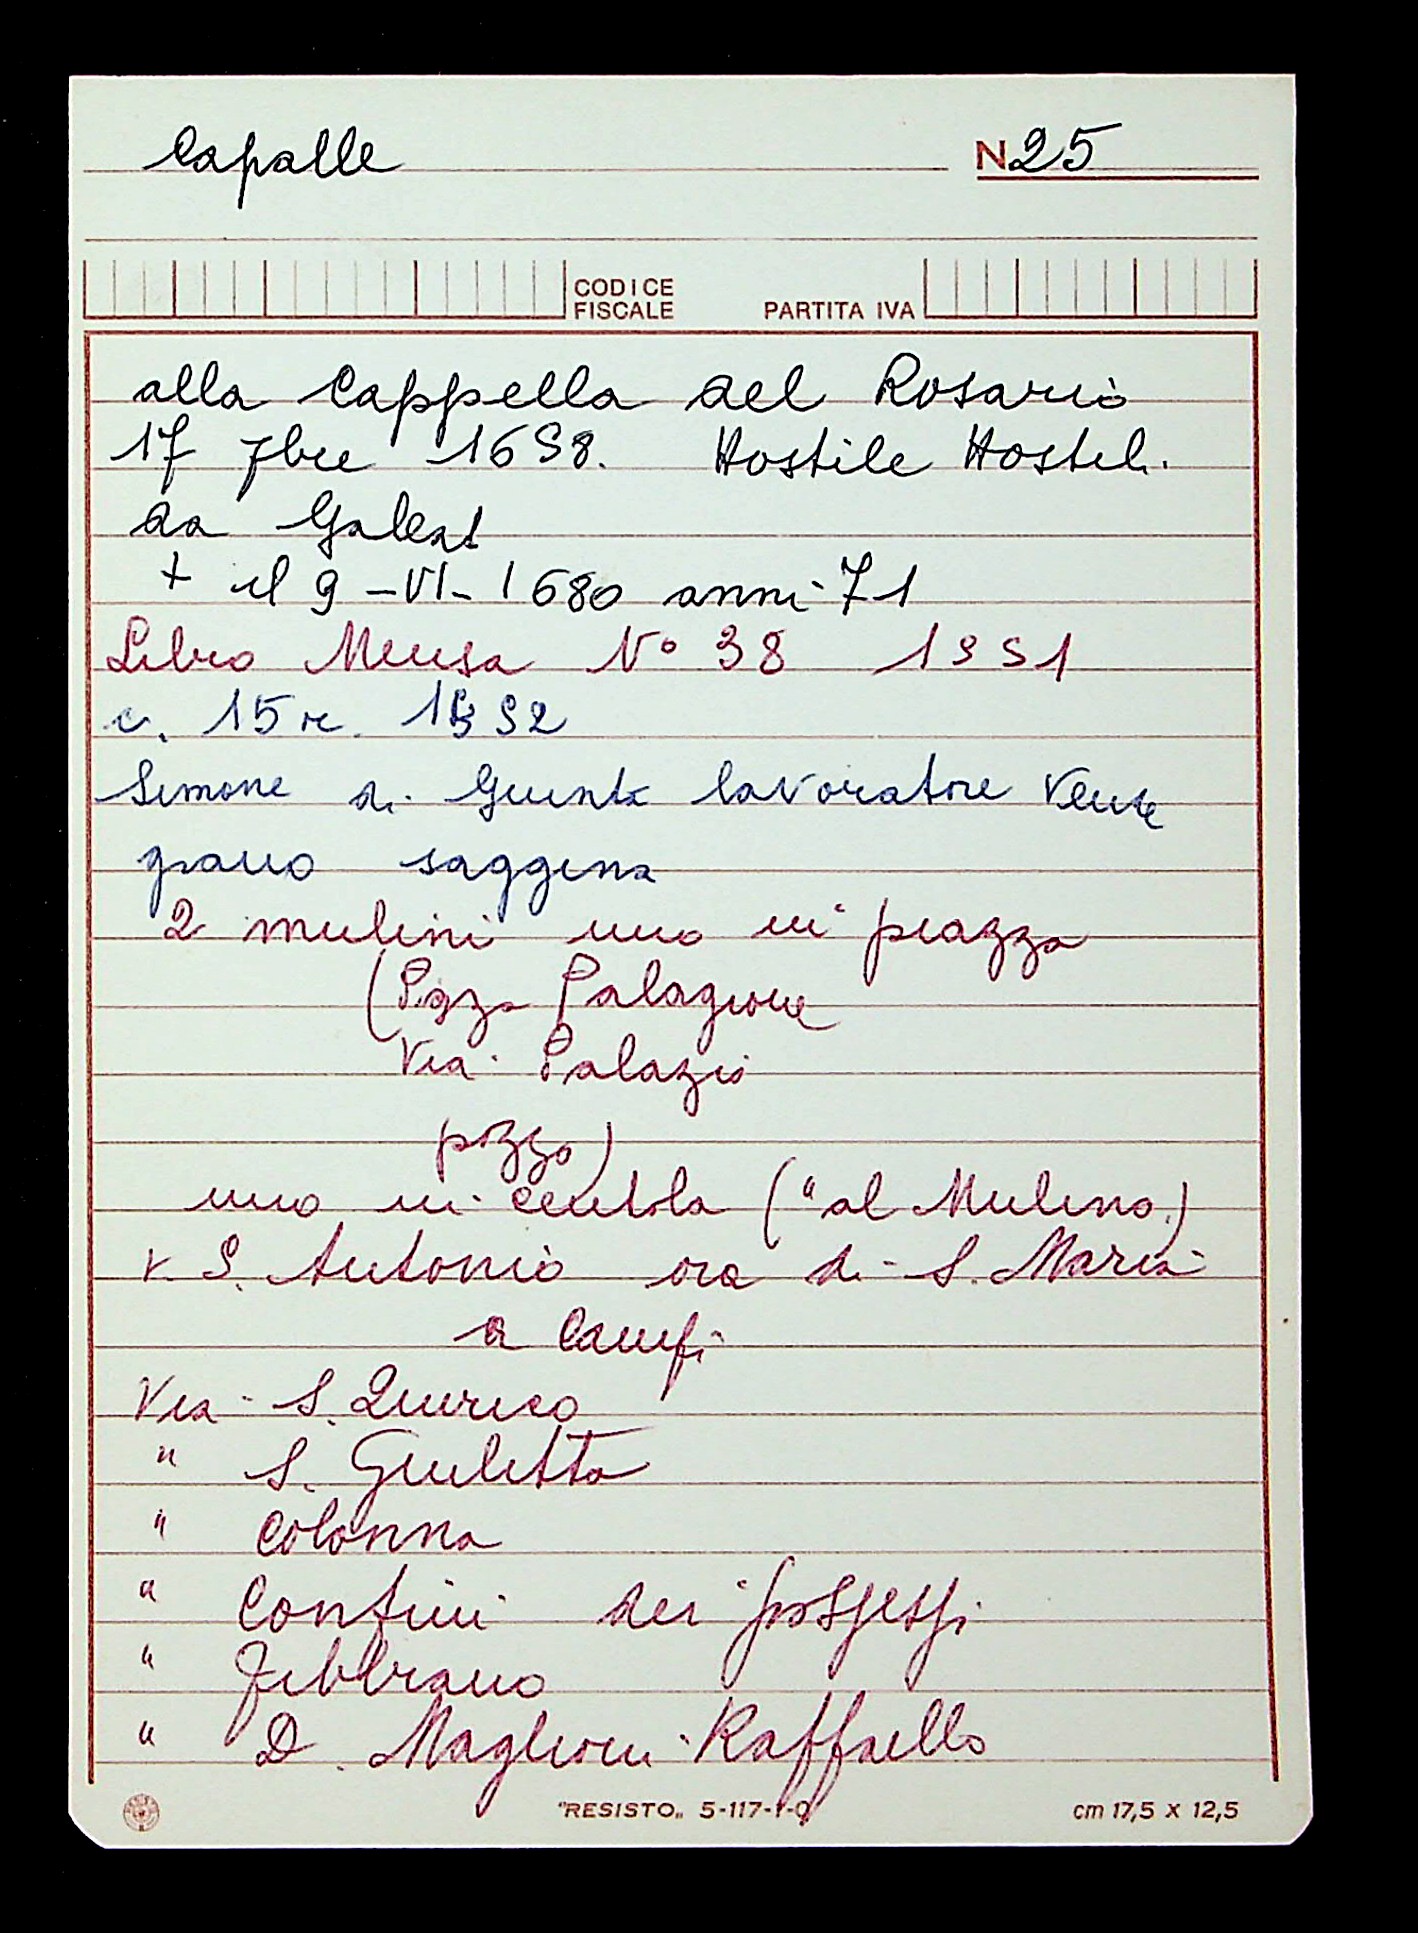 Capalle N25
CODICE
FISCALE PARTITA IVA
alla Cappella del Rosario
17 7bre 1698. Hostile Hostil.
da Galeat
+ il 9 -VI- 1680 anni 71
Libro Mensa N° 38 1991
c. 15 r. 1992
Simone di Giunta lavoratore vende
grano saggina
2 mulini uno in piazza
(P.zza Palagione
Via Palazio
pozzo)
uno in Centola ("al Mulino)
v. S. Antonio ora di S. Maria
a Campi
Via S. Quirico
" S. Giulitta
" Colonna
" Confini dei possessi
" Fibbiano
" D. Maglioni Raffaello
"RESISTO„ 5-117-1-0 cm 17,5 x 12,5